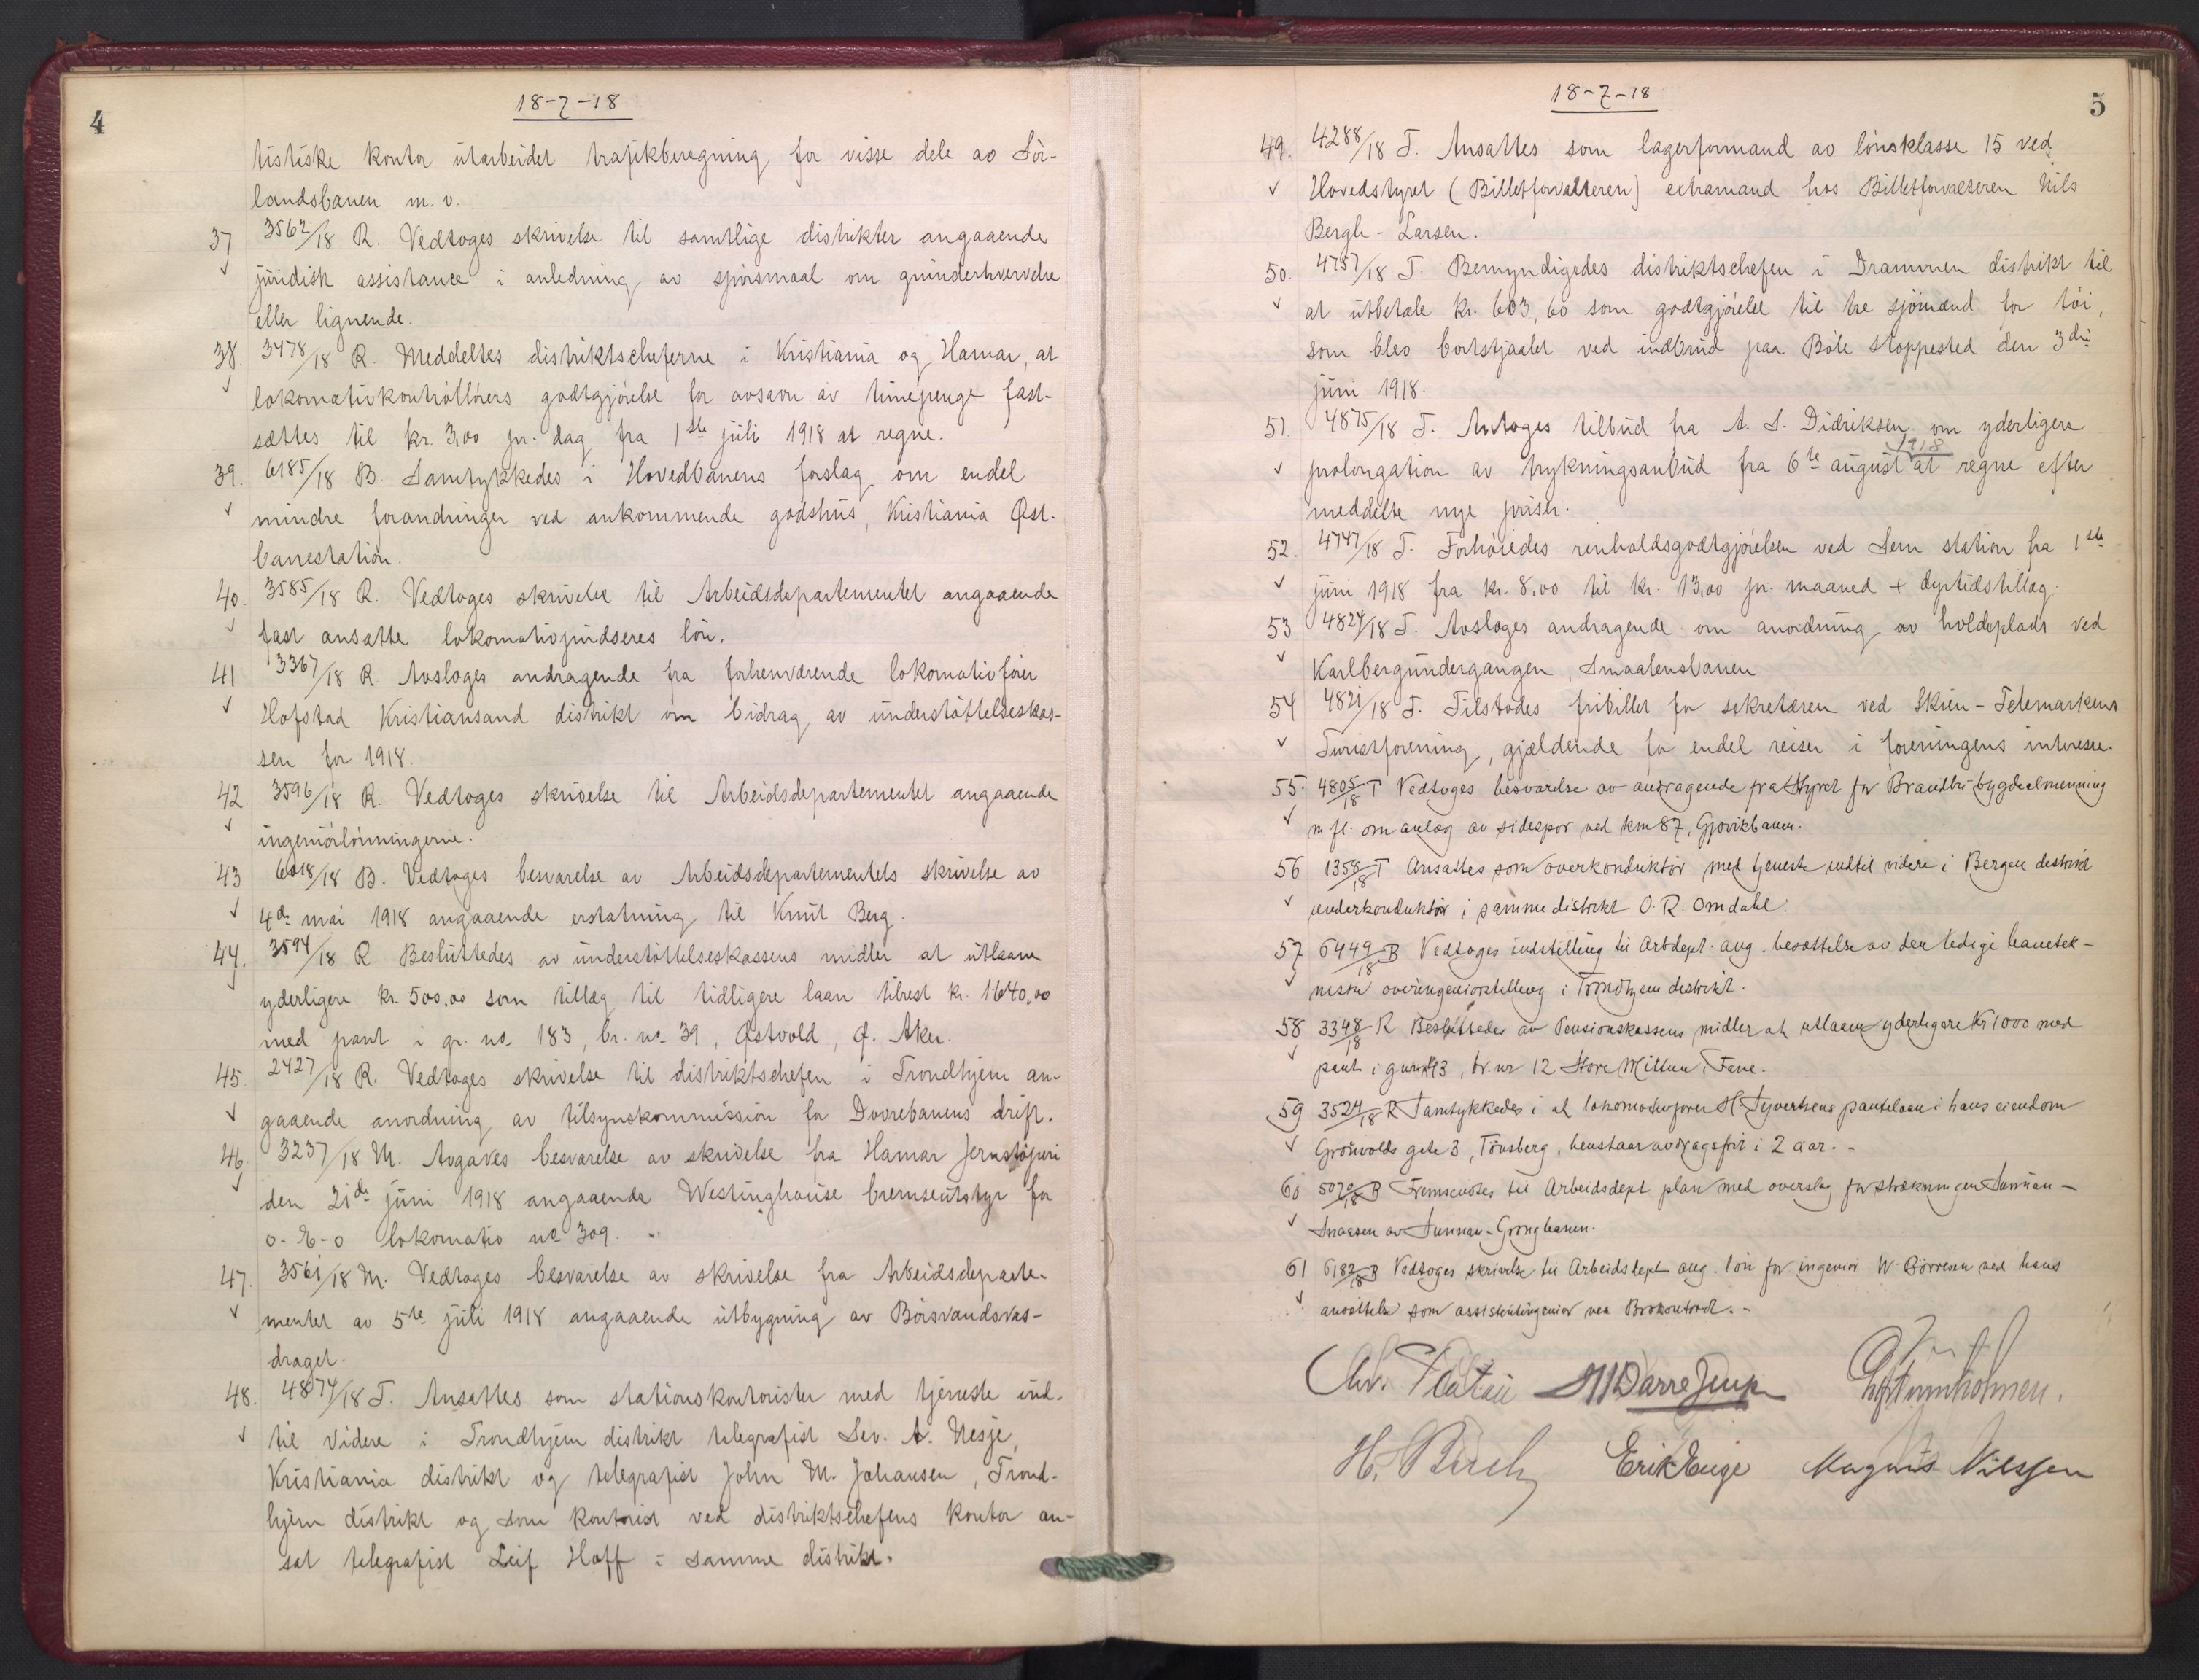 4
18-7-18
tistiske kontor utarbeidet trafikberegning for visse dele av Sör-
landsbanen m. v.
37 3562/18 R. Vedtoges skrivelse til samtlige distrikter angaaende
✓ juridisk assistance i anledning av spörsmaal om grunderhvervelse
eller lignende.
38. 3478/18 R. Meddeltes distriktscheferne i Kristiania og Hamar, at
✓ lokomotivkontrollörers godtgjörelse for avsavn av timepenge fast-
sættes til kr. 3,00 pr. dag fra 1ste juli 1918 at regne.
39. 6185/18 B. Samtykkedes i Hovedbanens forslag om endel
✓ mindre forandringer ved ankommende godshus, Kristiania Øst-
banestation.
40. 3585/18 R. Vedtoges skrivelse til Arbeidsdepartementet angaaende
✓ fast ansatte lokomotivpudseres lön.
41 3367/18 R. Avsloges andragende fra forhenværende lokomotivförer
✓ Hofstad Kristiansand distrikt om bidrag av understöttelseskas-
sen for 1918.
42. 3596/18 R. Vedtoges skrivelse til Arbeidsdepartementet angaaende
✓ ingeniörlönningerne.
43 6018/18 B. Vedtoges besvarelse av Arbeidsdepartementets skrivelse av
✓ 4de mai 1918 angaaende erstatning til Knut Berg.
44. 3594/18 R Besluttedes av understöttelseskassens midler at utlaane
✓ yderligere kr. 500,00 som tillæg til tidligere laan tilrest kr. 1640,00
med pant i gr. no. 183, br. no. 39, Østvold, Ø. Aker.
45. 2427/18 R. Vedtoges skrivelse til distriktschefen i Trondhjem an-
✓ gaaende anordning av tilsynskommission for Dovrebanens drift.
46. 3237/18 M. Avgaves besvarelse av skrivelse fra Hamar Jernstöperi
✓ den 21de juni 1918 angaaende Westinghouse bremseutstyr for
0-6-0 lokomotiv no. 309.
47. 3561/18 M. Vedtoges besvarelse av skrivelse fra Arbeidsdeparte-
✓ mentet av 5te juli 1918 angaaende utbygning av Börsvandsvas-
draget.
48. 4874/18 T. Ansattes som stationskontorister med tjeneste ind-
✓ til videre i Trondhjem distrikt telegrafist Sev. A. Nesje,
Kristiania distrikt og telegrafist John M. Johansen, Trond-
hjem distrikt og som kontorist ved distriktschefens kontor an-
sat telegrafist Leif Hoff i samme distrikt.
5
18-7-18
49. 4288/18 T. Ansattes som lagerformand av lönsklasse 15 ved
✓ Hovedstyret (Billetforvalteren) extramand hos Billetforvalteren Nils
Bergh-Larsen.
50. 4757/18 T. Bemyndigedes distriktschefen i Drammen distrikt til
✓ at utbetale kr. 603,60 som godtgjörelse til tre sjömænd for töi,
som blev bortstjaalet ved indbrud paa Böle stoppested den 3die
juni 1918.
51. 4875/18 T. Antoges tilbud fra A. S. Didriksen om yderligere
1918
✓ prolongation av trykningsanbud fra 6te august at regne efter
meddelte nye priser.
52. 4747/18 T. Forhöiedes renholdsgodtgjörelsen ved Sem station fra 1ste
✓ juni 1918 fra kr. 8,00 til kr. 13,00 pr. maaned + dyrtidstillæg.
53 4824/18 T. Avsloges andragende om anordning av holdeplads ved
✓ Karlbergundergangen, Smaalensbanen
54 4821/18 T. Tilstodes fribillet for sekretæren ved Skien-Telemarkens
✓ Turistforening, gjældende for endel reiser i foreningens interesse.
55. 4805/18 T Vedtoges besvarelse av andragende fra Styret for Brandbu bygdealmenning
✓ m. fl. om anlæg av sidespor ved km 87, Gjøvikbanen.
56 1358/18 T Ansattes som overkonduktör med tjeneste indtil videre i Bergen distrikt
✓ underkonduktör i samme distrikt O. R. Omdahl.
57 6449/18 B Vedtoges indstilling til Arbdept. ang. besættelse av den ledige banetek-
✓ niske overingeniörstilling i Trondhjem distrikt.
58 3348/18 R Besluttedes av Pensionskassens midler at utlaane yderligere Kr 1000 med
✓ pant i gnr 43, br. nr 12 Store Milune, Fane.
59 3524/18 R Samtykkedes i at lokomotivförer H. Syvertsens pantelaan i hans eiendom
✓ Grönvolds gate 3, Tönsberg, henstaar avdragsfrit i 2 aar. -
60 5070/18 B Fremsendtes til Arbeidsdept plan med overslag for strækningen Sunnan-
✓ Snaasen av Sunnan-Grongbanen.
61 6182/18 B Vedtoges skrivelse til Arbeidsdept ang. lön for ingeniör W. Börresen ved hans
✓ ansættelse som assistentingeniör ved Brokontoret. -
Chr. Platou
H. Birch Erik Enge Magnus Nilssen